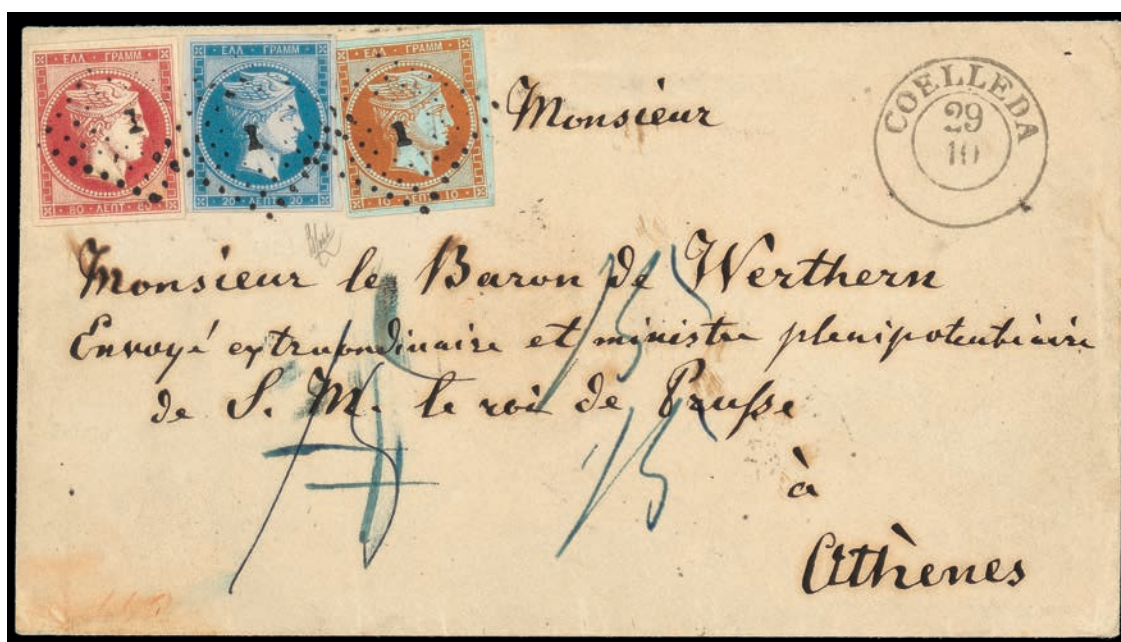 ΕΛΛ ΓΡΑΜΜ
80 ΛΕΠΤ 80
1
ΕΛΛ ΓΡΑΜΜ
20 ΛΕΠΤ 20
1
ΕΛΛ ΓΡΑΜΜ
10 ΛΕΠΤ 10
1
COELLEDA
29
10
Monsieur
Monsieur le Baron de Werthern
Envoyé extraordinaire et ministre plenipotentiaire
de S. M. le roi de Prusse
à
Athènes